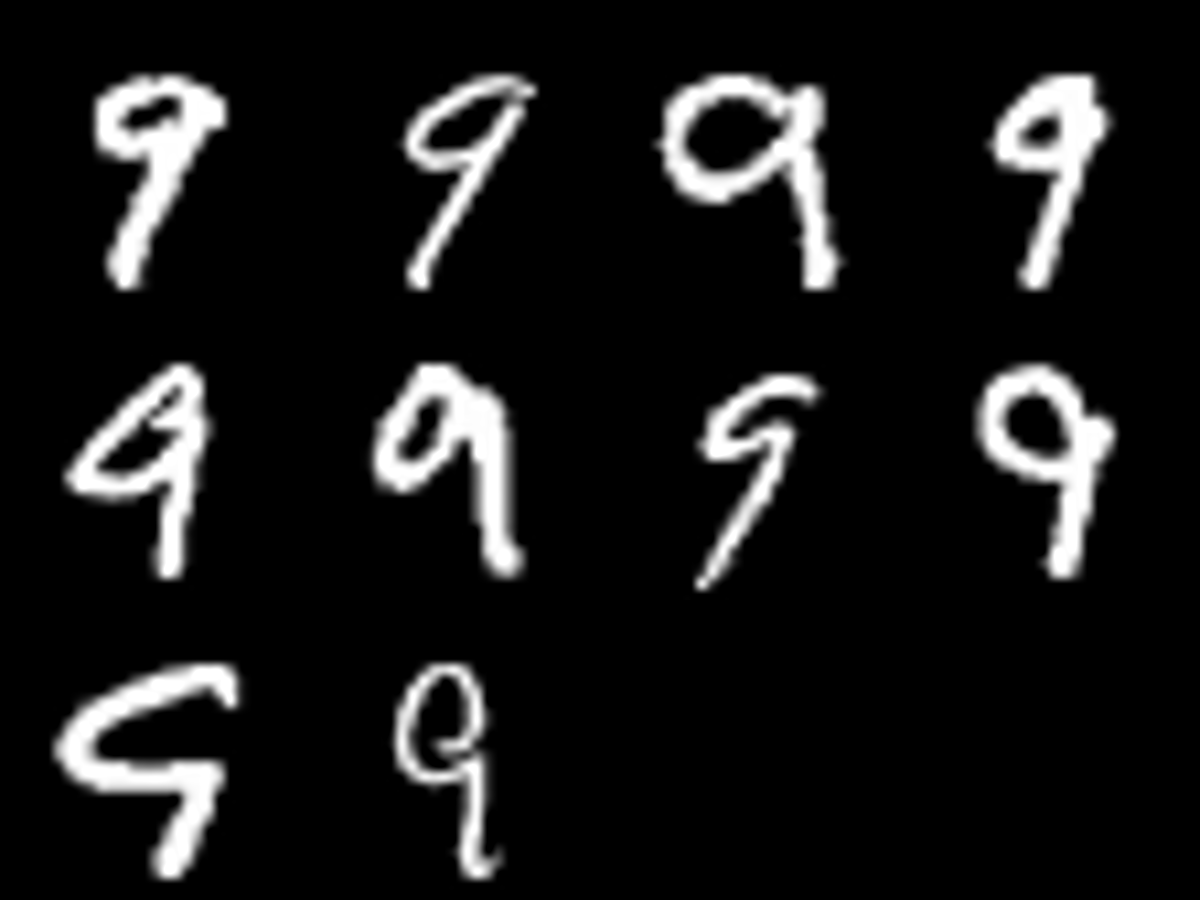 9 9 9 9
9 9 9 9
9 9